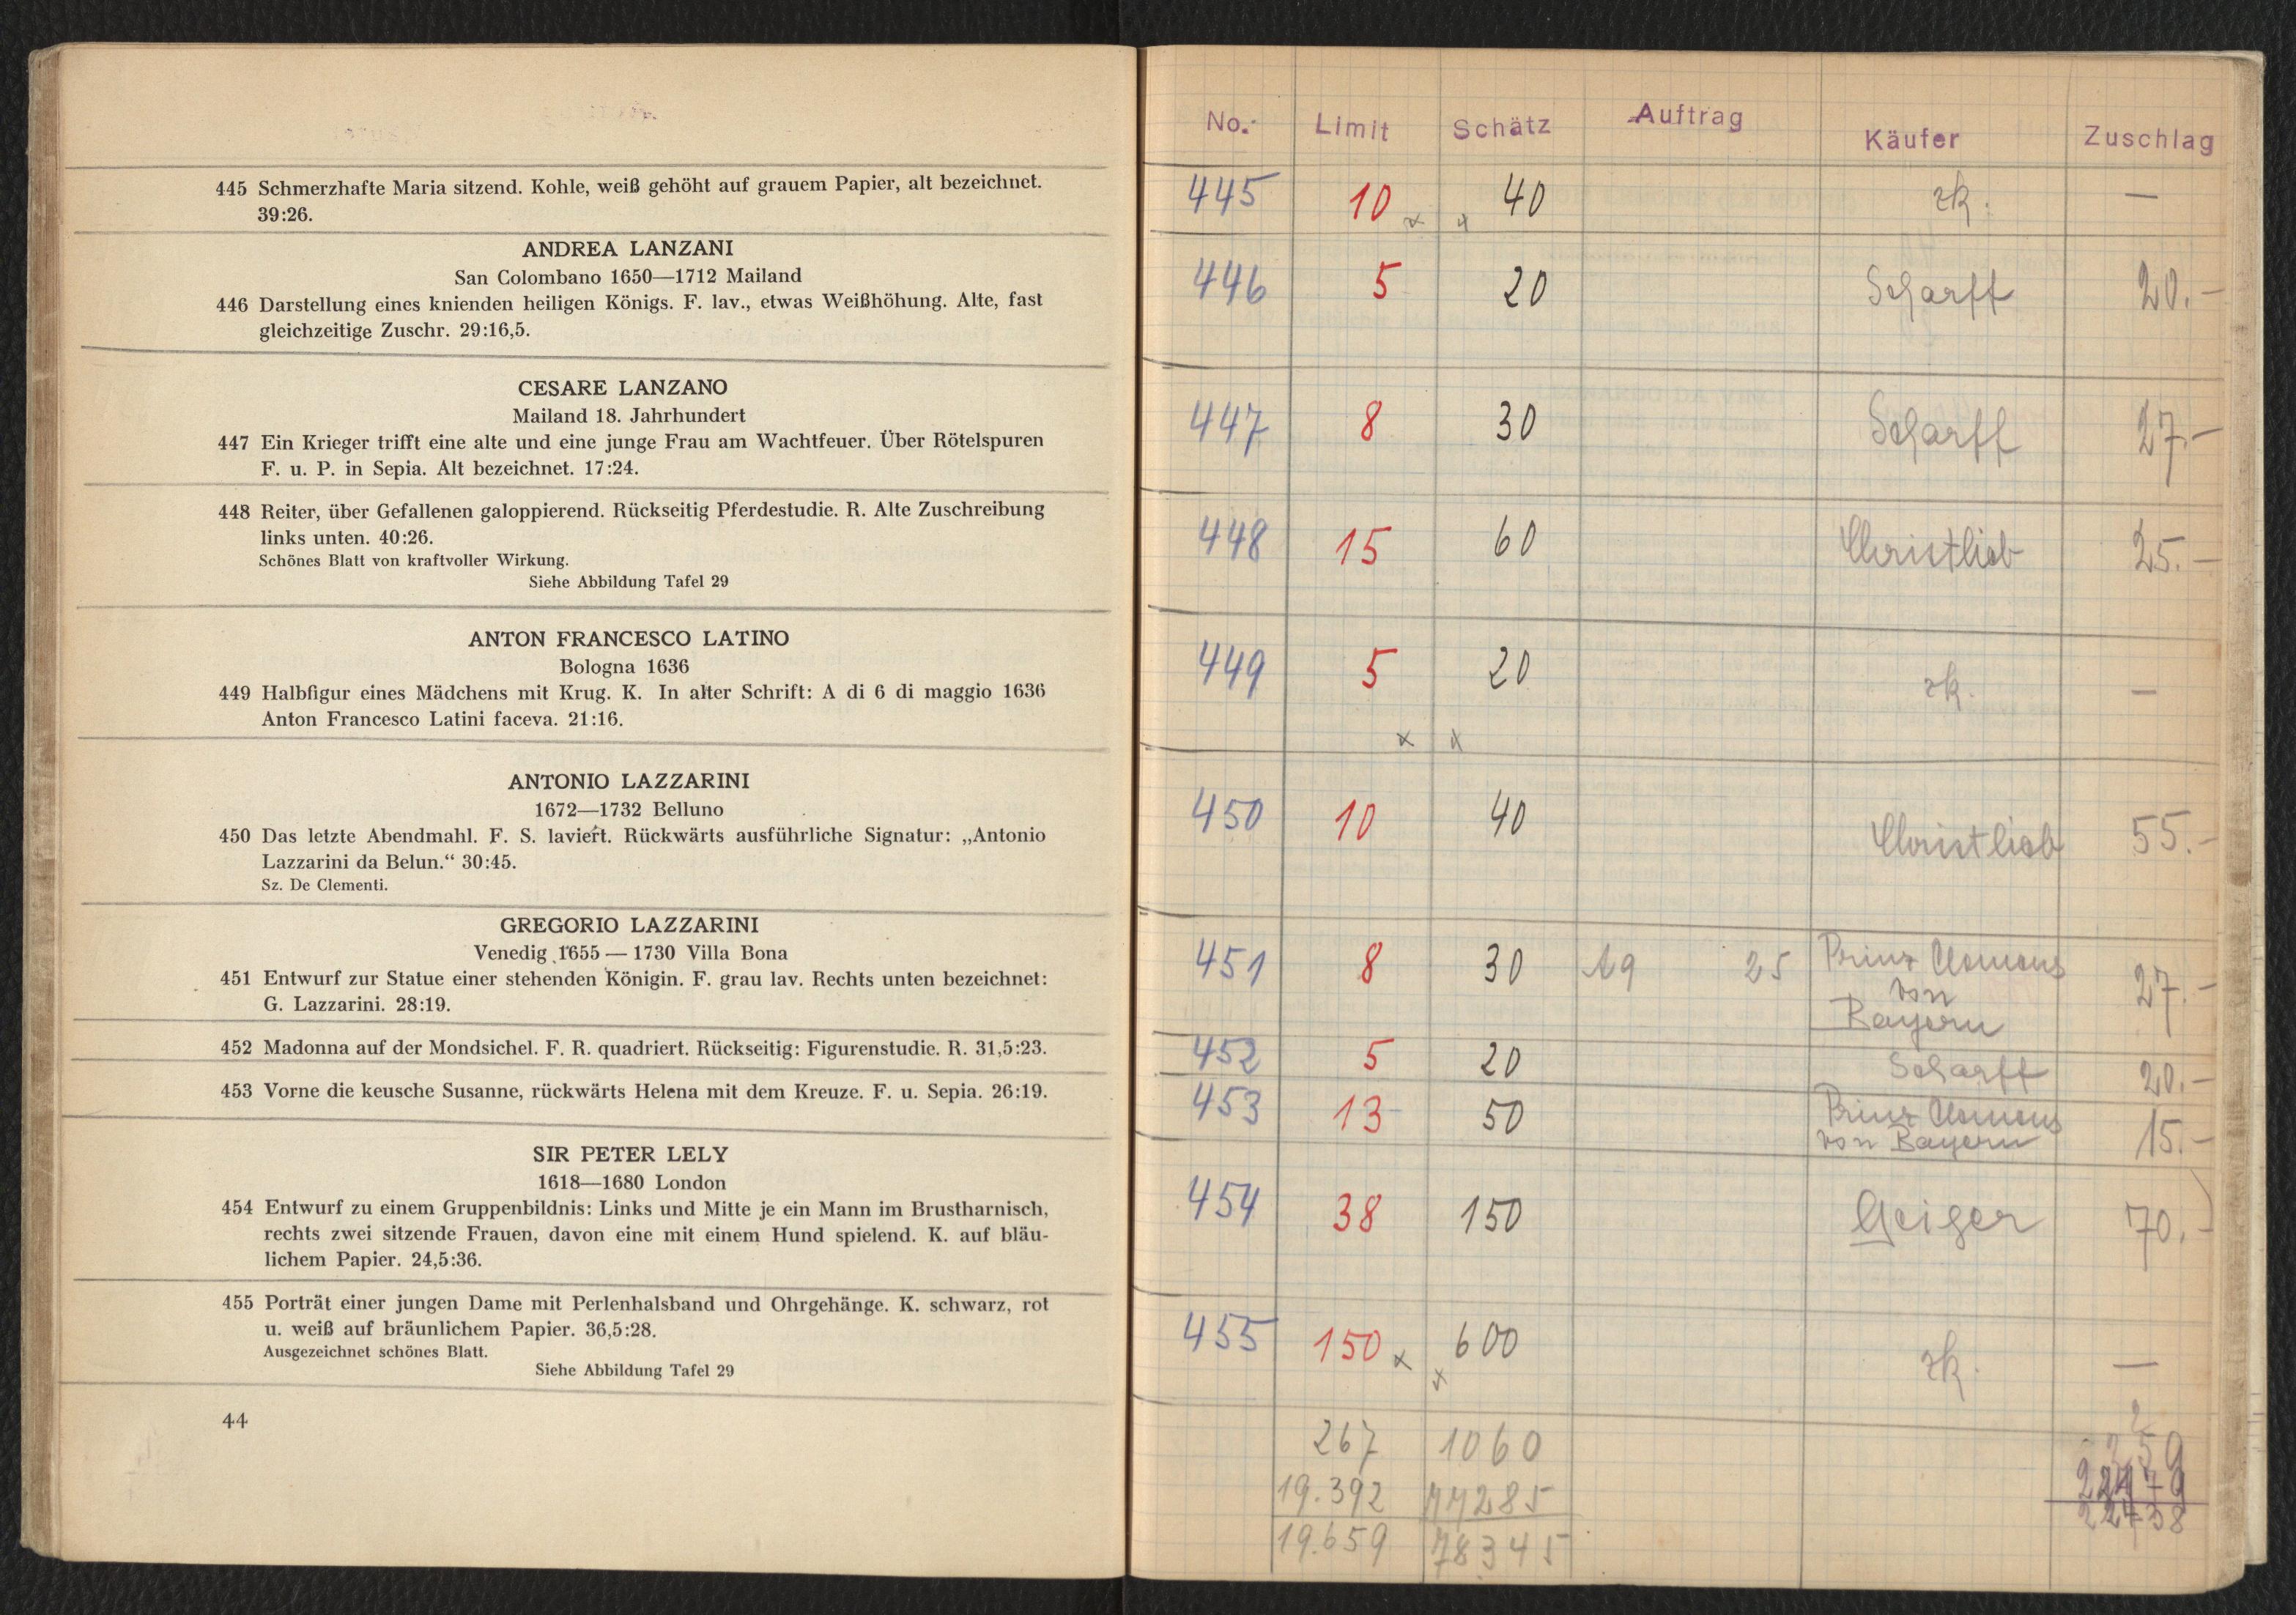 445 Schmerzhafte Maria sitzend. Kohle, weiß gehöht auf grauem Papier, alt bezeichnet.
39:26.
ANDREA LANZANI
San Colombano 1650—1712 Mailand
446 Darstellung eines knienden heiligen Königs. F. lav., etwas Weißhöhung. Alte, fast
gleichzeitige Zuschr. 29:16,5.
CESARE LANZANO
Mailand 18. Jahrhundert
447 Ein Krieger trifft eine alte und eine junge Frau am Wachtfeuer. Über Rötelspuren
F. u. P. in Sepia. Alt bezeichnet. 17:24.
448 Reiter, über Gefallenen galoppierend. Rückseitig Pferdestudie. R. Alte Zuschreibung
links unten. 40:26.
Schönes Blatt von kraftvoller Wirkung.
Siehe Abbildung Tafel 29
ANTON FRANCESCO LATINO
Bologna 1636
449 Halbfigur eines Mädchens mit Krug. K. In alter Schrift: A di 6 di maggio 1636
Anton Francesco Latini faceva. 21:16.
ANTONIO LAZZARINI
1672—1732 Belluno
450 Das letzte Abendmahl. F. S. laviert. Rückwärts ausführliche Signatur: „Antonio
Lazzarini da Belun.“ 30:45.
Sz. De Clementi.
GREGORIO LAZZARINI
Venedig 1655 — 1730 Villa Bona
451 Entwurf zur Statue einer stehenden Königin. F. grau lav. Rechts unten bezeichnet:
G. Lazzarini. 28:19.
452 Madonna auf der Mondsichel. F. R. quadriert. Rückseitig: Figurenstudie. R. 31,5:23.
453 Vorne die keusche Susanne, rückwärts Helena mit dem Kreuze. F. u. Sepia. 26:19.
SIR PETER LELY
1618—1680 London
454 Entwurf zu einem Gruppenbildnis: Links und Mitte je ein Mann im Brustharnisch,
rechts zwei sitzende Frauen, davon eine mit einem Hund spielend. K. auf bläu-
lichem Papier. 24,5:36.
455 Porträt einer jungen Dame mit Perlenhalsband und Ohrgehänge. K. schwarz, rot
u. weiß auf bräunlichem Papier. 36,5:28.
Ausgezeichnet schönes Blatt.
Siehe Abbildung Tafel 29
44
No. Limit Schätz Auftrag Käufer Zuschlag
445 10 x x 40 zk. —
446 5 20 Scharff 20.—
447 8 30 Scharff 27.—
448 15 60 Christlieb 25.—
449 5 20 zk. —
x x
450 10 40 Christlieb 55.—
451 8 30 19 25 Prinz Clemens
von
Bayern 27.—
452 5 20 Scharff 20.—
453 13 50 Prinz Clemens
von Bayern 15.—
454 38 150 Geiger 70.—
455 150 x x 600 zk. —
267 1060 259
19.392 77285
19.659 78345